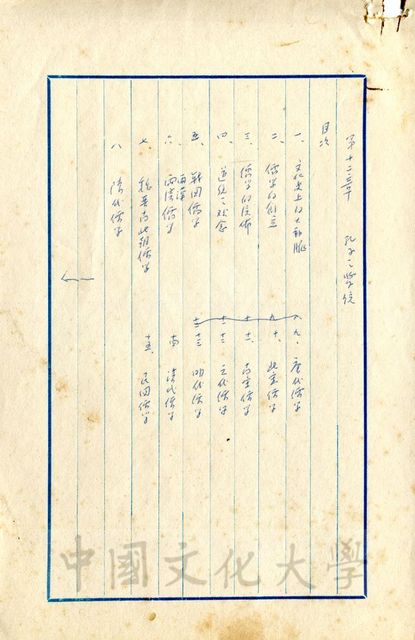 第十二章 孔子之學統
目次
一、文化史上的大動脈
二、儒學的創立
三、儒學的傳佈
四、道統之觀念
五、戰國儒學
六、兩漢儒學
七、魏晉南北朝儒學
八、隋代儒學
九、唐代儒學
十、北宋儒學
十一、南宋儒學
十二、元代儒學
十三、明代儒學
十四、清代儒學
十五、民國儒學
中國文化大學